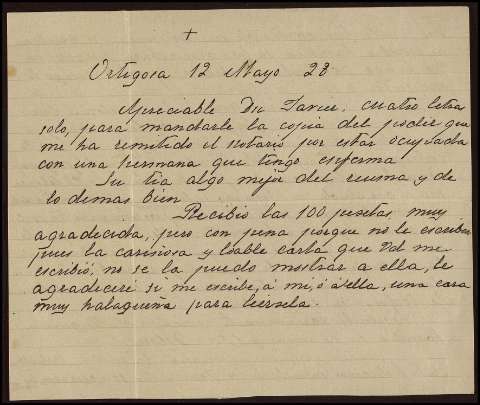 +
Ortigosa 12 Mayo 28
Apreciable Dn Javier, cuatro letra
solo, para mandarle la copia del poder que
me ha remitido el notario por estar ocupada
con una hermana que tengo enferma
Su tia algo mejor del reuma y de
lo demas bien
Recibio las 100 pesetas muy
agradecida, pero con pena porque no le escriben
pues la cariñosa y amable carta que Vd me
escribió, no se la puedo mostrar a ella, le
agradeceré si me escribe, á mi, ó á ella, una cosa
muy halagueña para leersela.